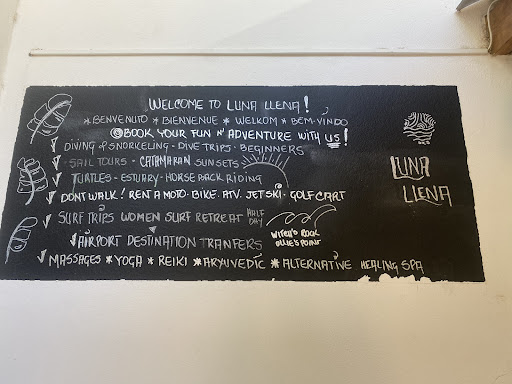 WELCOME TO LUNA LLENA!
*BENVENUTO *BIENVENUE *WELKOM *BEM-VINDO
@BOOK YOUR FUN N' ADVENTURE WITH US!
DIVING & SNORKELING - DIVE TRIPS - BEGINNERS
SAIL TOURS - CATAMARAN SUNSETS
TURTLES - ESTUARY - HORSE BACK RIDING
DONT WALK! RENT A MOTO - BIKE - ATV. JETSKI - GOLF CART
SURF TRIPS WOMEN SURF RETREAT HALF DAY
WITCH'S ROCK
OLLIE'S POINT
AIRPORT DESTINATION TRANFERS
MASSAGES *YOGA *REIKI *ARYUVEDIC *ALTERNATIVE HEALING SPA
LUNA
LLENA